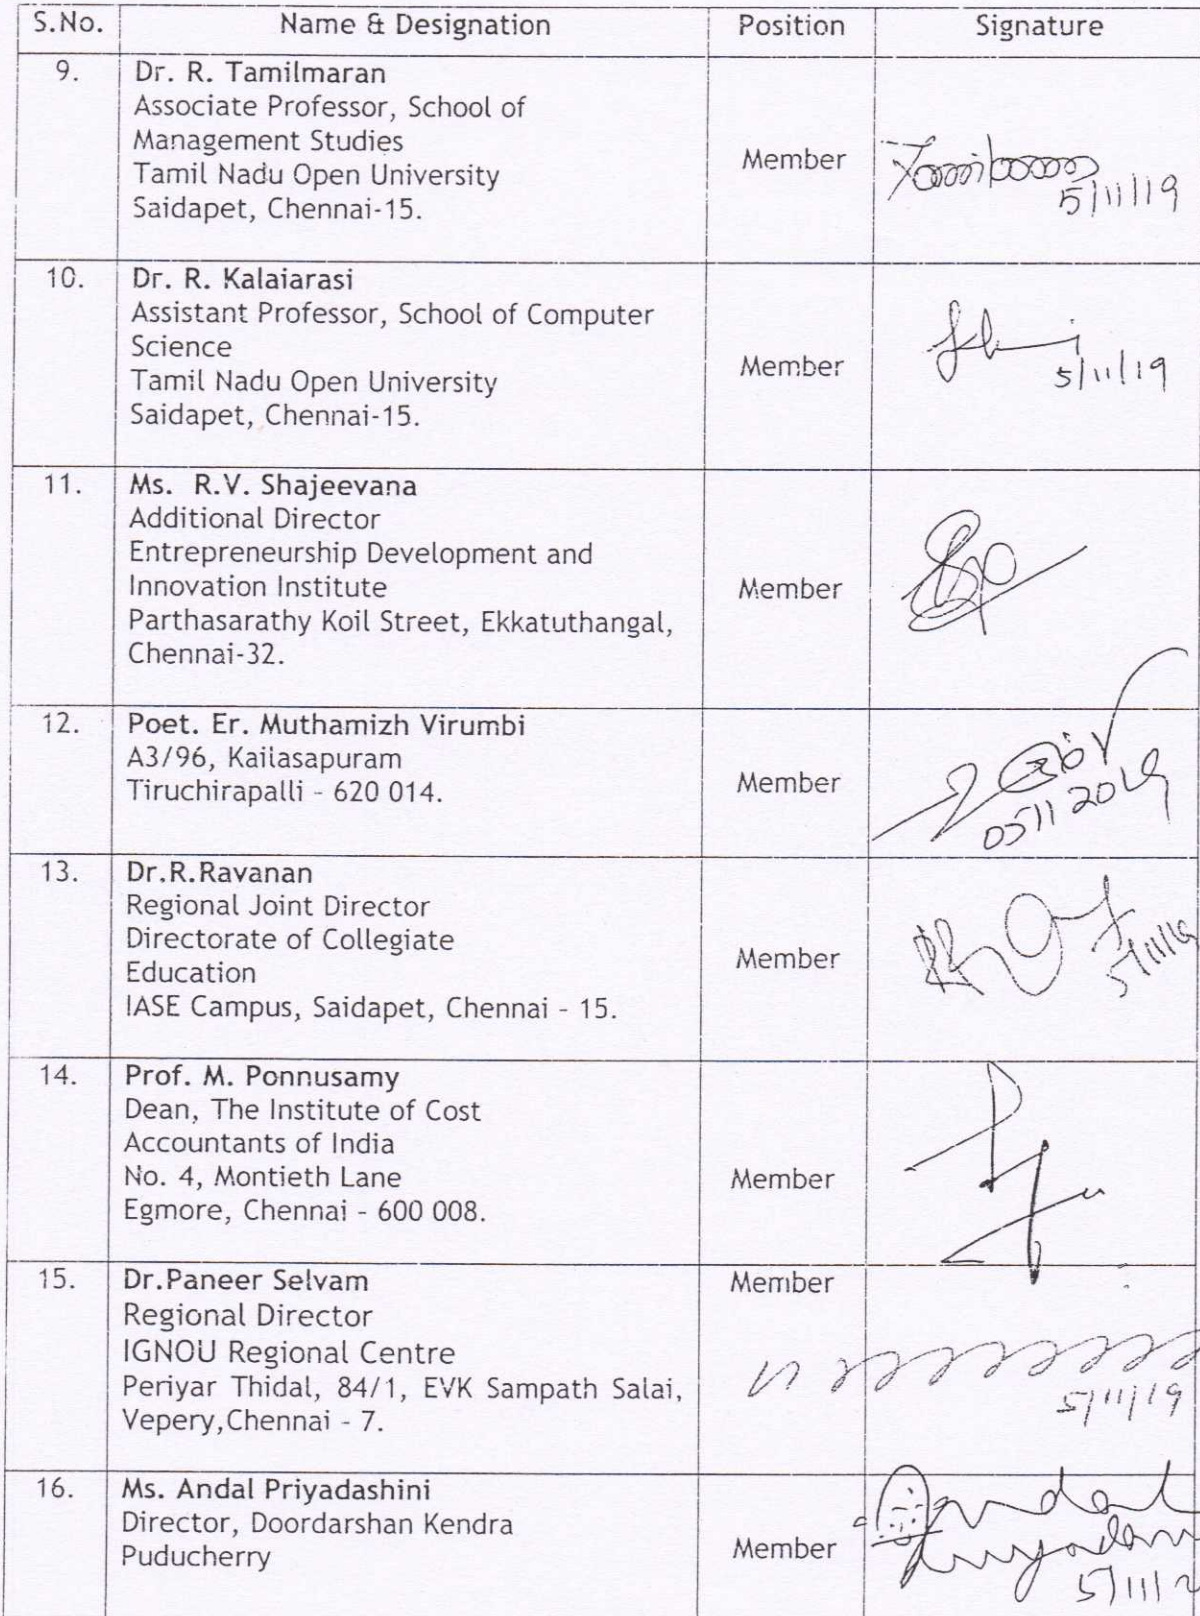 S.No. Name & Designation Position Signature
9. Dr. R. Tamilmaran
Associate Professor, School of
Management Studies
Tamil Nadu Open University
Saidapet, Chennai-15.
Member
5/11/19
10. Dr. R. Kalaiarasi
Assistant Professor, School of Computer
Science
Tamil Nadu Open University
Saidapet, Chennai-15.
Member
5/11/19
11. Ms. R.V. Shajeevana
Additional Director
Entrepreneurship Development and
Innovation Institute
Parthasarathy Koil Street, Ekkatuthangal,
Chennai-32.
Member
12. Poet. Er. Muthamizh Virumbi
A3/96, Kailasapuram
Tiruchirapalli - 620 014.
Member
05112019
13. Dr.R.Ravanan
Regional Joint Director
Directorate of Collegiate
Education
IASE Campus, Saidapet, Chennai - 15.
Member
5/11/19
14. Prof. M. Ponnusamy
Dean, The Institute of Cost
Accountants of India
No. 4, Montieth Lane
Egmore, Chennai - 600 008.
Member
15. Dr.Paneer Selvam
Regional Director
IGNOU Regional Centre
Periyar Thidal, 84/1, EVK Sampath Salai,
Vepery,Chennai - 7.
Member
5/11/19
16. Ms. Andal Priyadashini
Director, Doordarshan Kendra
Puducherry
Member
Andal
5/11/2